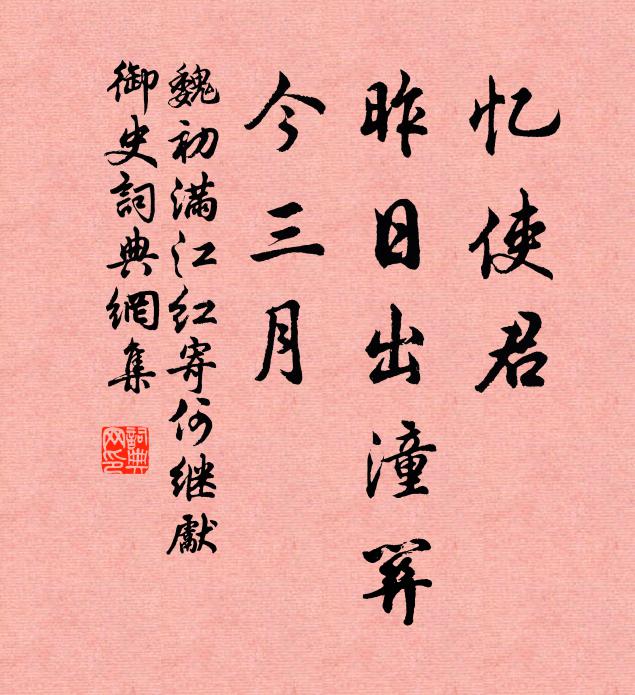 忆使君
昨日出潼关
今三月
魏初满江红寄何继献
御史詞典網集
詞典网印